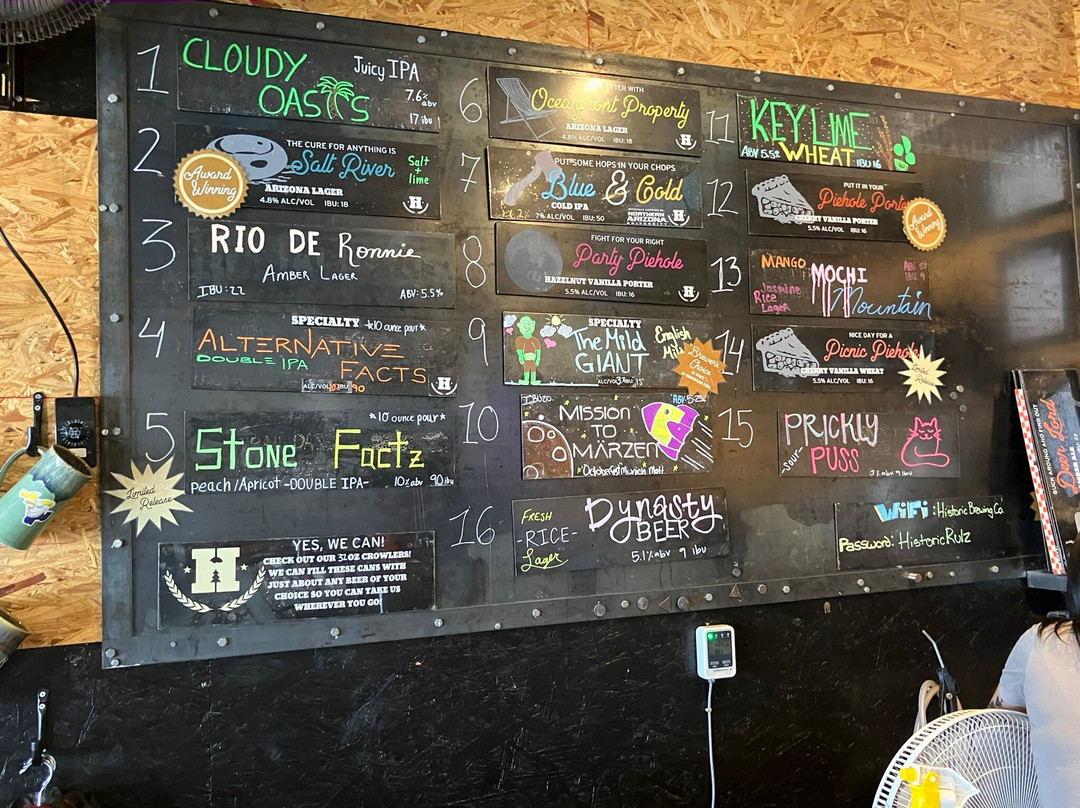 1
CLOUDY
OASIS
Juicy IPA
7.6% abv
17 ibu
2
Award
Winning
THE CURE FOR ANYTHING IS
Salt River
ARIZONA LAGER
4.8% ALC/VOL IBU: 18
Salt
+
lime
H
3
RIO DE Ronnie
AMBER LAGER
IBU: 22
ABV: 5.5%
4
SPECIALTY
*10 ounce pour*
ALTERNATIVE
DOUBLE IPA
FACTS
H
5
*10 ounce pour*
Stone Factz
Peach/Apricot -DOUBLE IPA-
10% abv 90 ibu
Limited
Release
H
YES, WE CAN!
CHECK OUT OUR 32OZ CROWLERS!
WE CAN FILL THESE CANS WITH
JUST ABOUT ANY BEER OF YOUR
CHOICE SO YOU CAN TAKE US
WHEREVER YOU GO!
6
WITH
Oceanfront Property
ARIZONA LAGER
4.8% ALC/VOL IBU: 18
H
7
PUT SOME HOPS IN YOUR CHOPS
Blue & Gold
COLD IPA
7% ALC/VOL IBU: 50
NORTHERN
ARIZONA
H
8
FIGHT FOR YOUR RIGHT
Party Piehole
HAZELNUT VANILLA PORTER
5.5% ALC/VOL IBU: 16
H
9
SPECIALTY
The Mild
GIANT
English
Mild
Brewers
Choice
10
IBU 20
ABV 5.2%
MISSION
TO
MÄRZEN
Octoberfest Munich Malt
16
FRESH
-RICE-
Lager
Dynasty
BEER
5.1% abv 9 ibu
11
KEY LIME
WHEAT
ABV 5.5%
IBU 16
12
PUT IT IN YOUR
Piehole Porter
CHERRY VANILLA PORTER
5.5% ALC/VOL IBU: 16
Award
Winning
13
MANGO
MOCHI
Mountain
Jasmine
Rice
Lager
14
NICE DAY FOR A
Picnic Piehole
CHERRY VANILLA WHEAT
5.5% ALC/VOL IBU: 16
15
PRICKLY
PUSS
-sour-
5% abv 9 ibu
WiFi: Historic Brewing Co.
Password: HistoricRulz
Beer Land